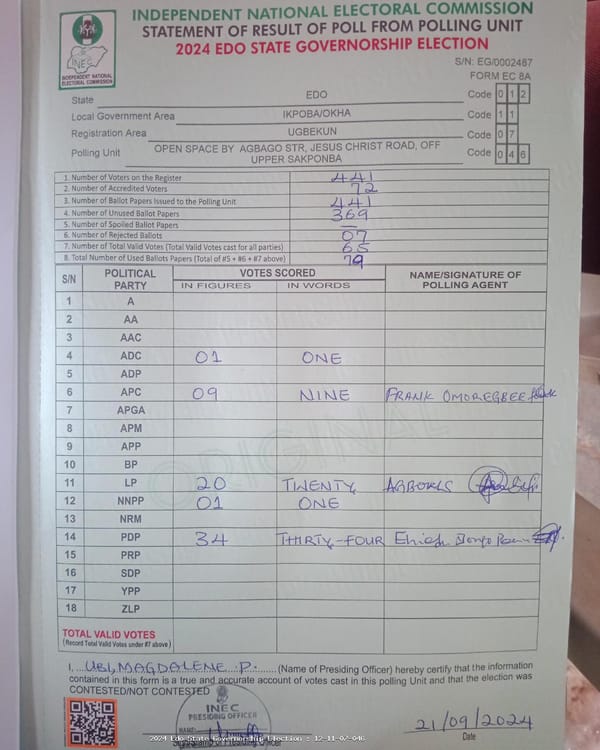 INDEPENDENT NATIONAL ELECTORAL COMMISSION
STATEMENT OF RESULT OF POLL FROM POLLING UNIT
2024 EDO STATE GOVERNORSHIP ELECTION
INEC
INDEPENDENT NATIONAL ELECTORAL COMMISSION
S/N: EG/0002487
FORM EC 8A
State EDO Code 0 1 2
Local Government Area IKPOBA/OKHA Code 1 1
Registration Area UGBEKUN Code 0 7
Polling Unit OPEN SPACE BY AGBAGO STR, JESUS CHRIST ROAD, OFF UPPER SAKPONBA Code 0 4 6
1. Number of Voters on the Register 441
2. Number of Accredited Voters 72
3. Number of Ballot Papers Issued to the Polling Unit 441
4. Number of Unused Ballot Papers 369
5. Number of Spoiled Ballot Papers —
6. Number of Rejected Ballots 07
7. Number of Total Valid Votes (Total Valid Votes cast for all parties) 65
8. Total Number of Used Ballots Papers (Total of #5 + #6 + #7 above)
S/N POLITICAL PARTY VOTES SCORED NAME/SIGNATURE OF POLLING AGENT
IN FIGURES IN WORDS
1 A
2 AA
3 AAC
4 ADC 01 ONE
5 ADP
6 APC 09 NINE FRANK OMOREGBEE
7 APGA
8 APM
9 APP
10 BP
11 LP 20 TWENTY
12 NNPP 01 ONE
13 NRM
14 PDP 34 THIRTY-FOUR
15 PRP
16 SDP
17 YPP
18 ZLP
ORIGINAL
TOTAL VALID VOTES
(Record Total Valid Votes under #7 above)
I, UBI, MAGDALENE .P. (Name of Presiding Officer) hereby certify that the information
contained in this form is a true and accurate account of votes cast in this polling Unit and that the election was
CONTESTED/NOT CONTESTED
INEC
PRESIDING OFFICER
NAME:
21/09/2024
Date
2024 Edo State Governorship Election : 12-11-07-046